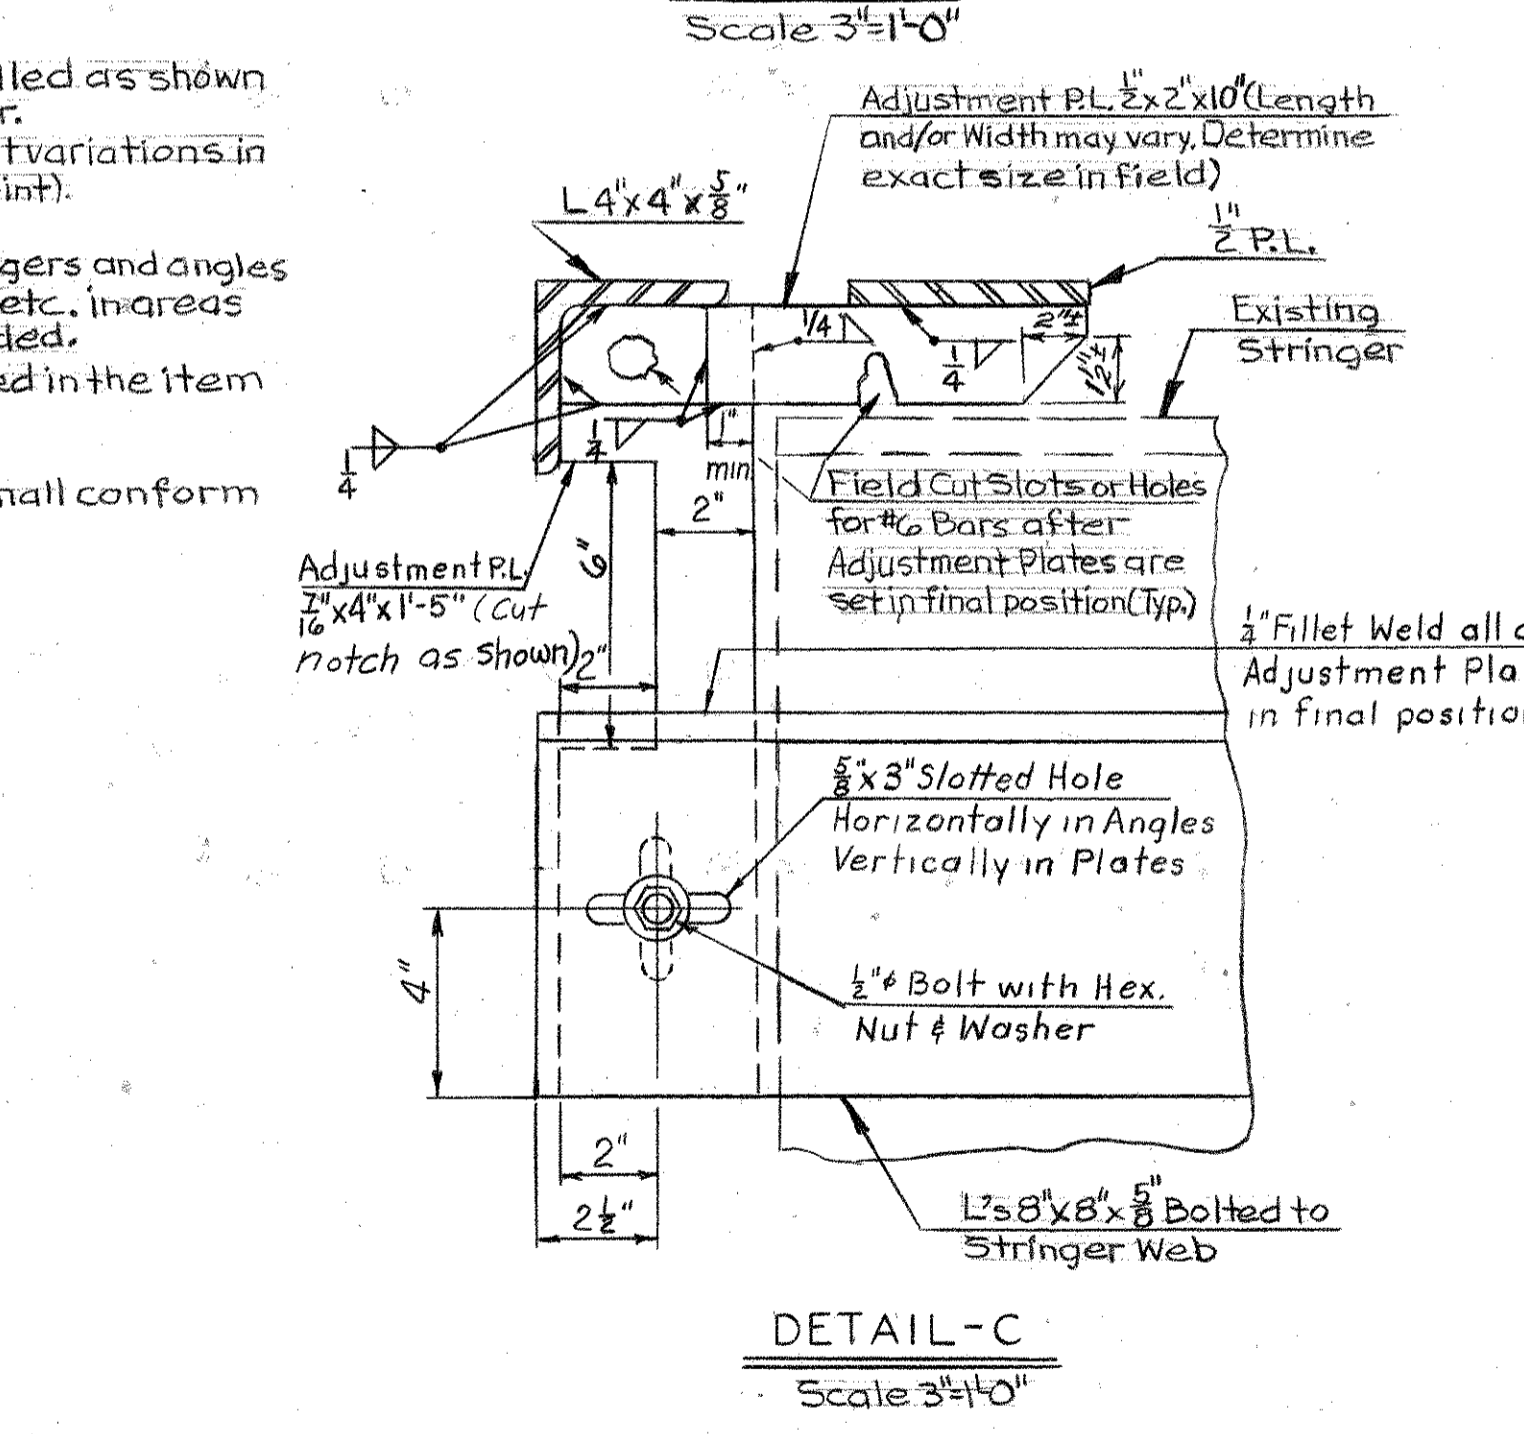 Scale 3"=1'-0"
lled as shown
r.
t variations in
int).
gers and angles
etc. in areas
ded.
ed in the item
hall conform
Adjustment P.L. 1/2"x2"x10"(Length
and/or Width may vary. Determine
exact size in field)
L 4"x4"x5/8"
1/2" P.L.
Existing
Stringer
1/4
2"±
1/4
1 1/2"±
1/4
1/4
1"
min.
2"
6"
Field Cut Slots or Holes
for #6 Bars after
Adjustment Plates are
set in final position(Typ.)
Adjustment P.L.
7/16"x4"x1'-5" (Cut
notch as shown)
2"
1/4" Fillet Weld all
Adjustment Pla
in final positio
5/8"x3" Slotted Hole
Horizontally in Angles
Vertically in Plates
4"
1/2"ø Bolt with Hex.
Nut & Washer
2"
2 1/2"
L's 8"x8"x5/8" Bolted to
Stringer Web
DETAIL-C
Scale 3"=1'-0"